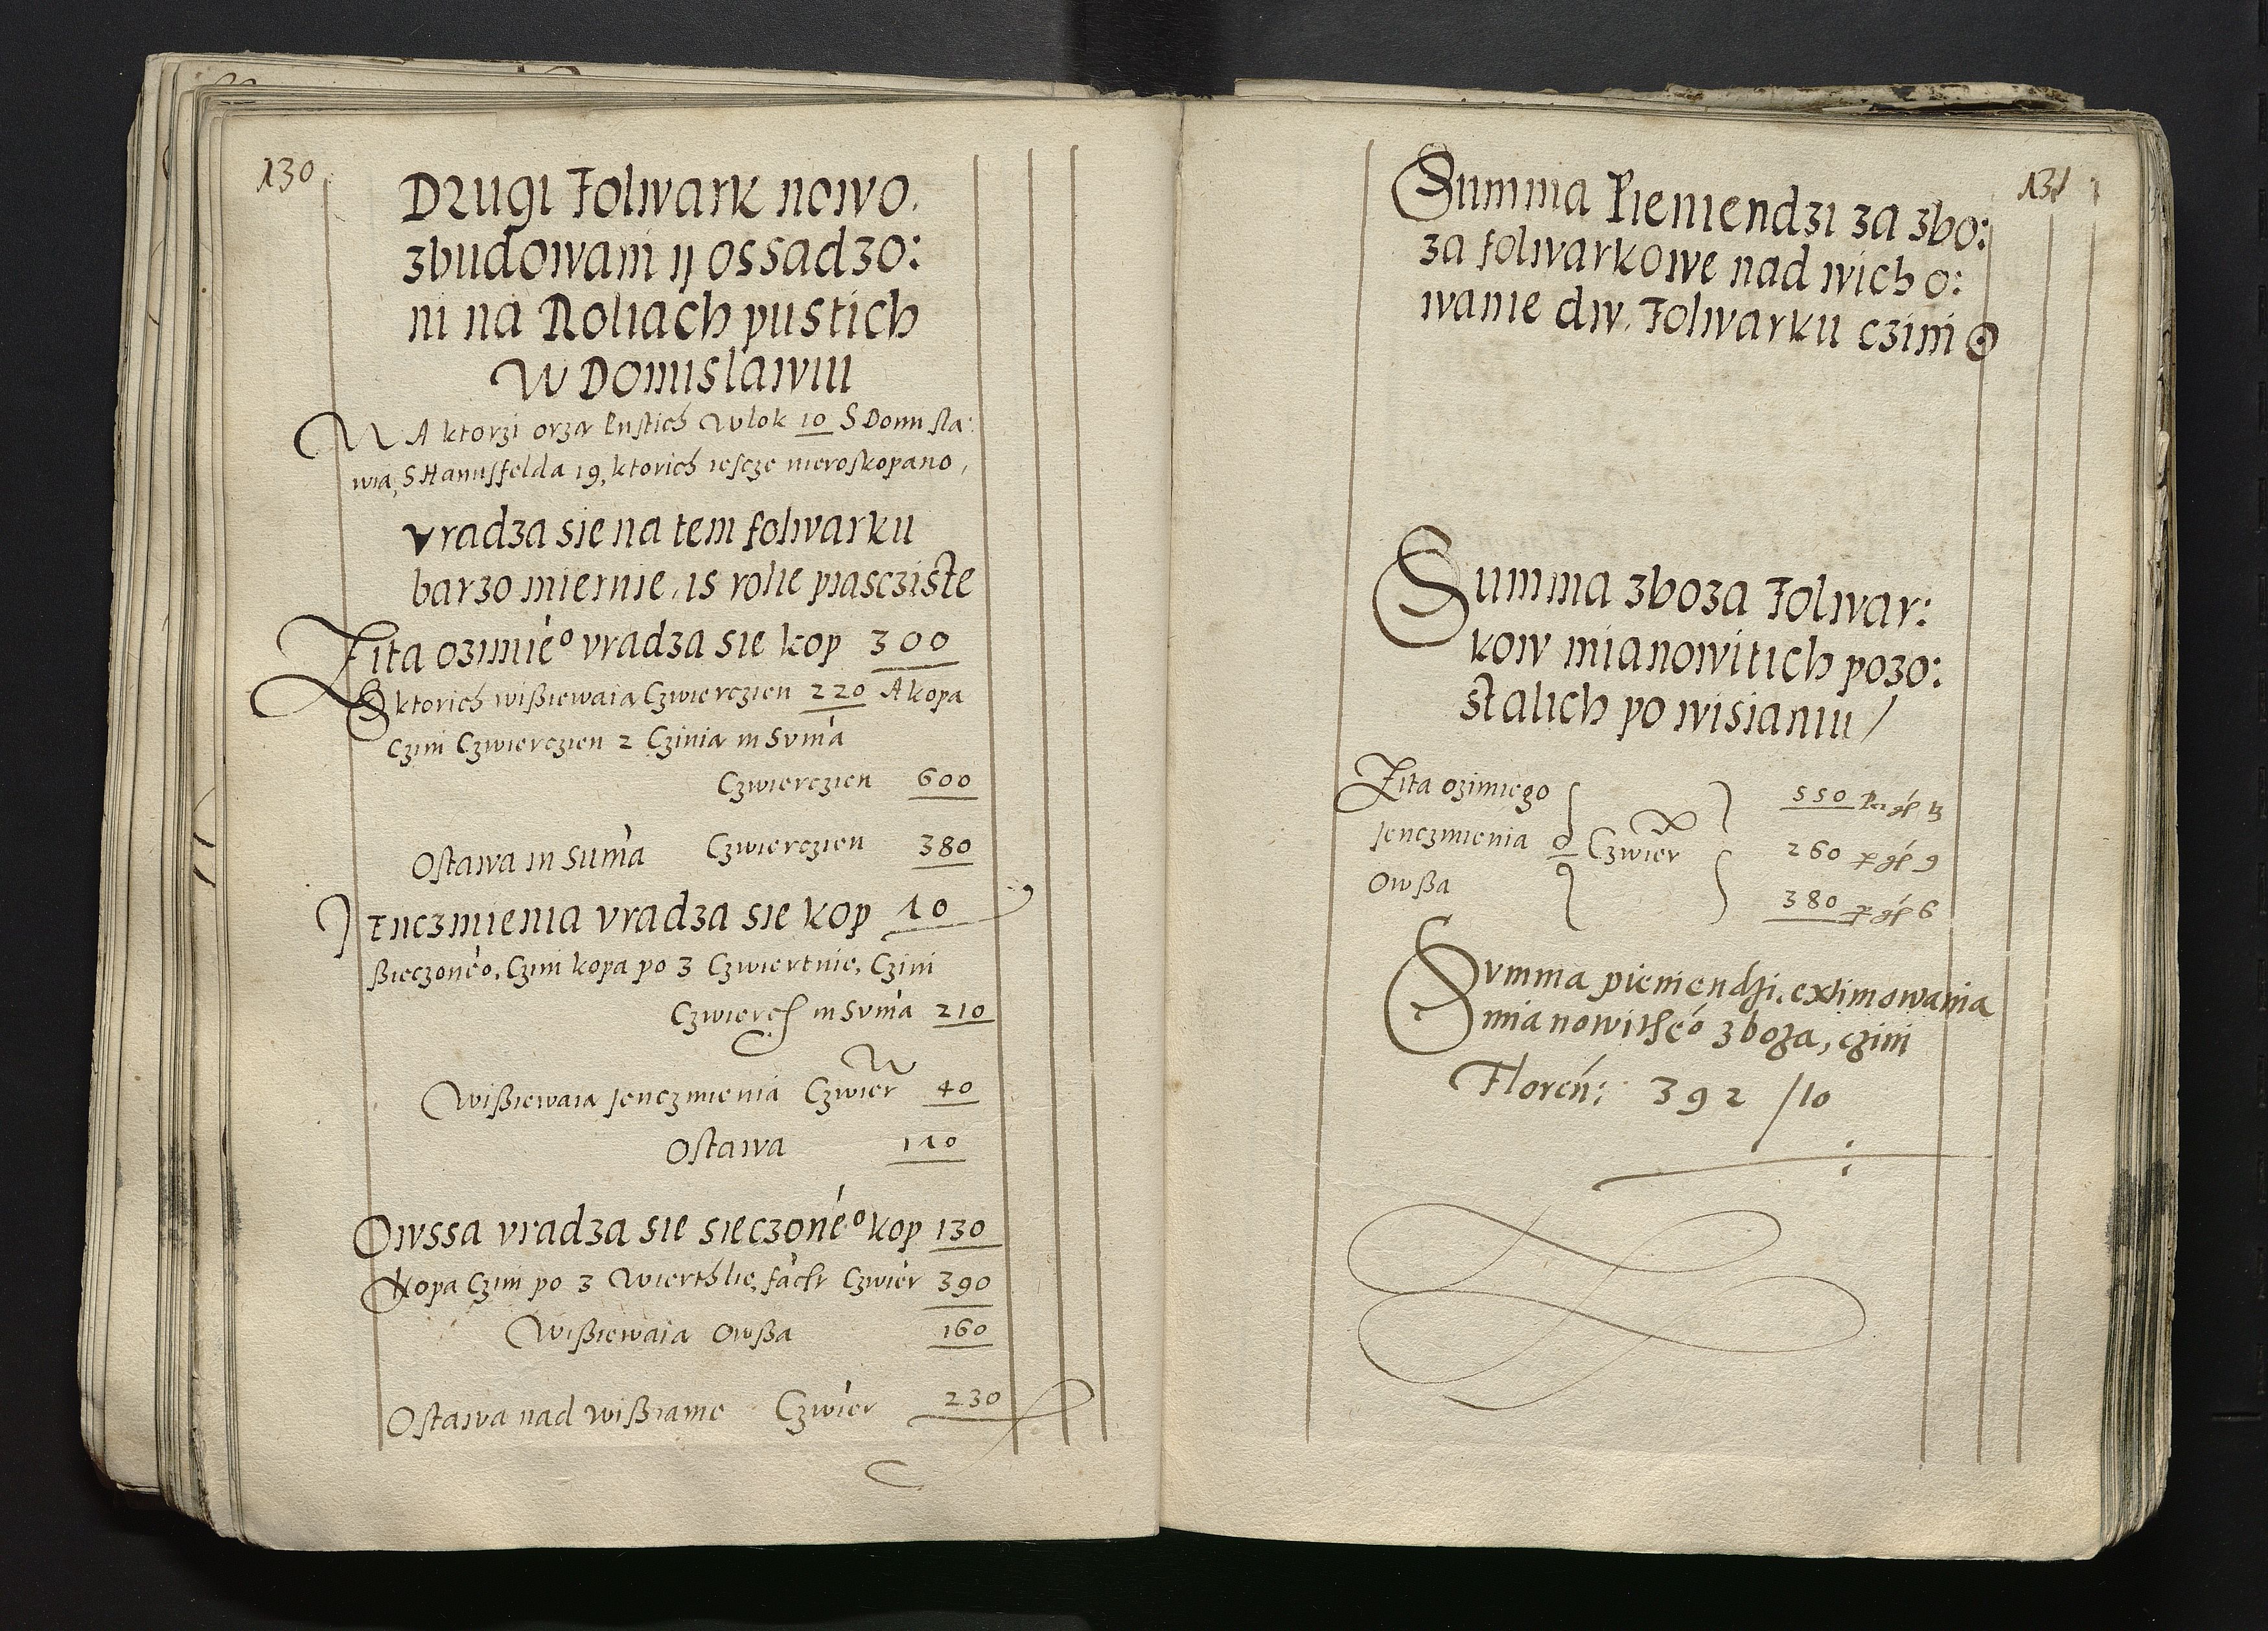 130
Drugi Folwark nowo.
zbudowani ij ossadzo:
ni na Roliach pustich
W Domislawiu
NA ktorzi orza Pustich Wlok 10 S Domisla:
wia, S Hannsfelda 19, ktorich iescze nieroskopano,
vradza sie na tem folwarku
barzo miernie, is rolie piascziste
Zita ozimie͛o vradza sie kop 300
S ktorich wißiewaia Czwierczien 220 A kopa
Czini Czwierczien 2 Czinia in Suma
Czwierczien 600
Ostawa in Suma Czwierczien 380
Jenczmienia vradza sie kop 10
ßieczone͛o, Czini kopa po 3 Czwiertnie, Czini
in Suma 210
Wißiewaia Jenczmienia Czwier 40
Ostawa 110
Owssa vradza sie sieczone͛o kop 130
Kopa Czini po 3 Wierthlie, Czwier 390
Wißiewaia Owßa 160
Ostawa nad wißianie Czwier 230
131
Summa Pieniendzi za zbo:
za folwarkowe nad wicho:
wanie dw. Folwarku czini
Summa zboza Folwar:
kow mianowitich pozo:
stalich po wisianiu /
Zita ozimiego 550
Jenczmienia Czwier 260 9
Owßa 380 6
Summa pieniendzi, extimowania
mianowithe͛o zboza, czini
Floren: 392 /10